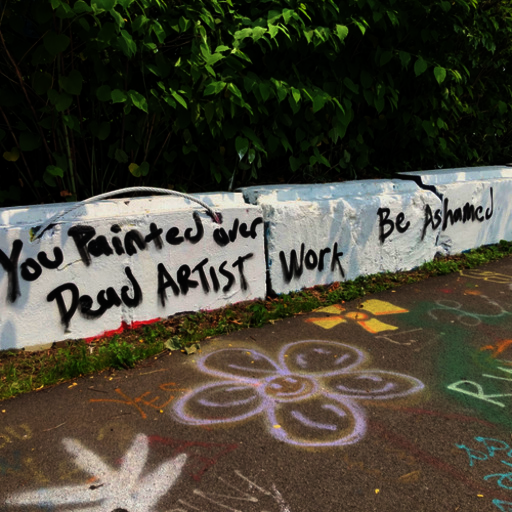 You Painted over
Dead ARTIST Work
Be Ashamed
YES